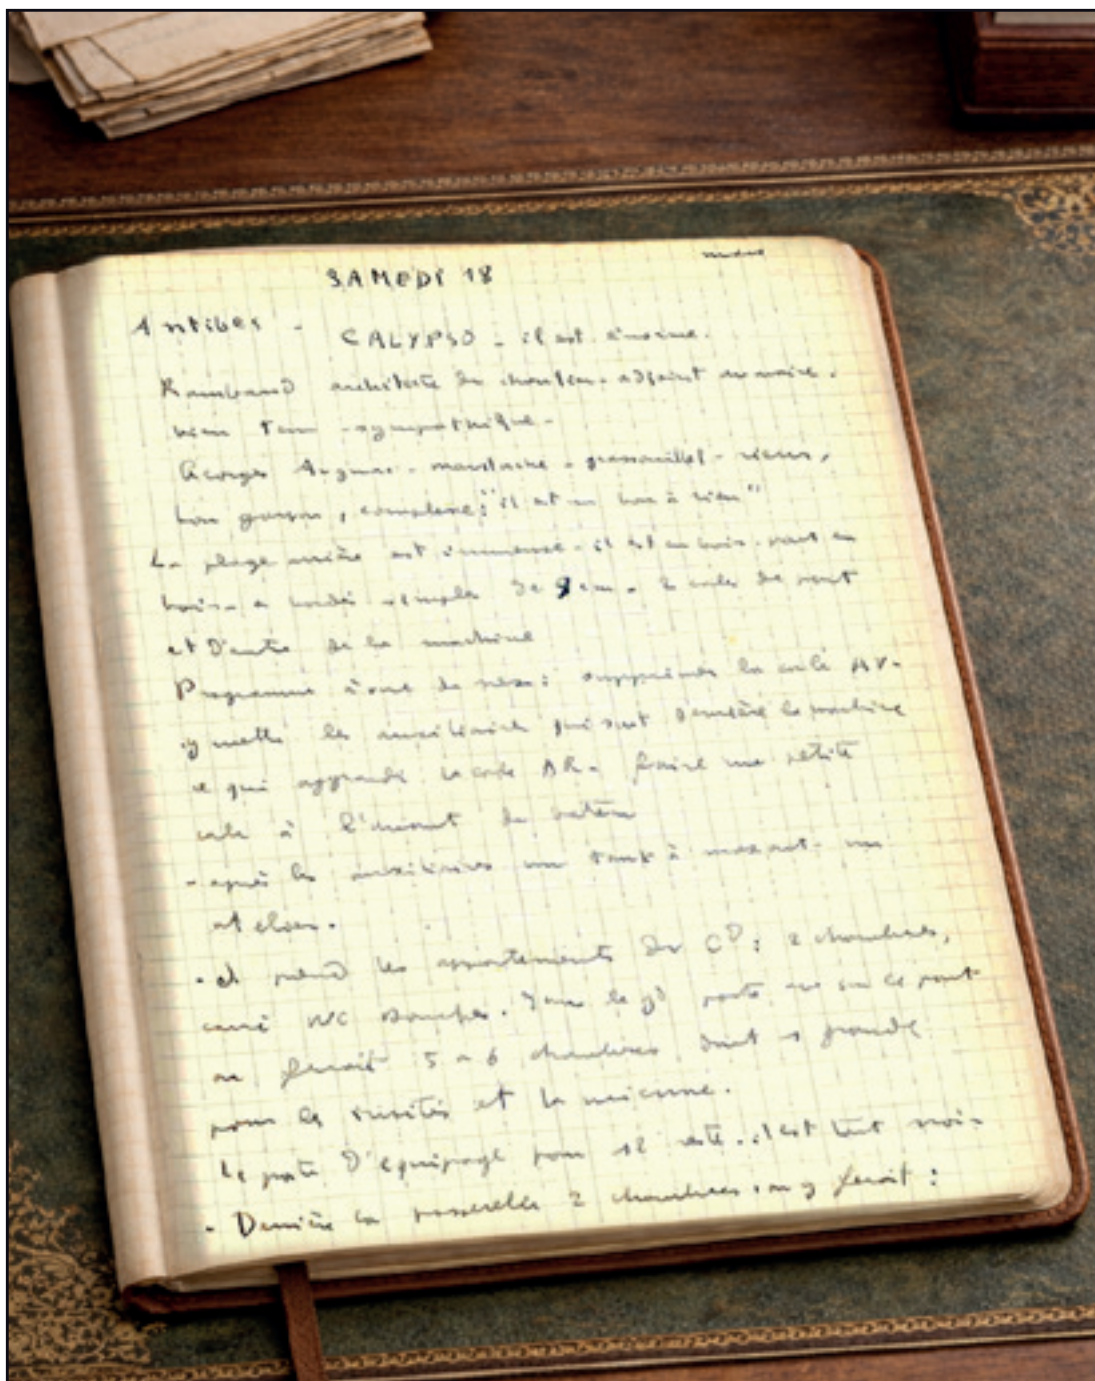 SAMEDI 18
Antibes - CALYPSO - il est énorme.
Rambaud architecte du chantier - adjoint au maire.
bien - sympathique -
Georges - moustache - grassouillet - rieur,
bon garçon, complexe; "il est un bon à rien"
La plage arrière est immense - il est en bois. pont en
bois - a bordé simple de 8 cm. 2 cales de
et d'autre de la machine
Programme : supprimer la cale AV -
y mettre les auxiliaires qui sont derrière la machine
ce qui agrandit la cale AR - faire une petite
cale à l'avant du bateau
- après les auxiliaires un tank à mazout - un
atelier.
- et prend les appartements du CD : 2 chambres,
carré WC Douches. Dans le gd poste sur ce pont
on ferait 5 a 6 chambres dont 1 grande
pour les invités et la mienne.
Le poste d'équipage pour 12 reste. il est tout
- Derrière la passerelle 2 chambres : on y ferait :